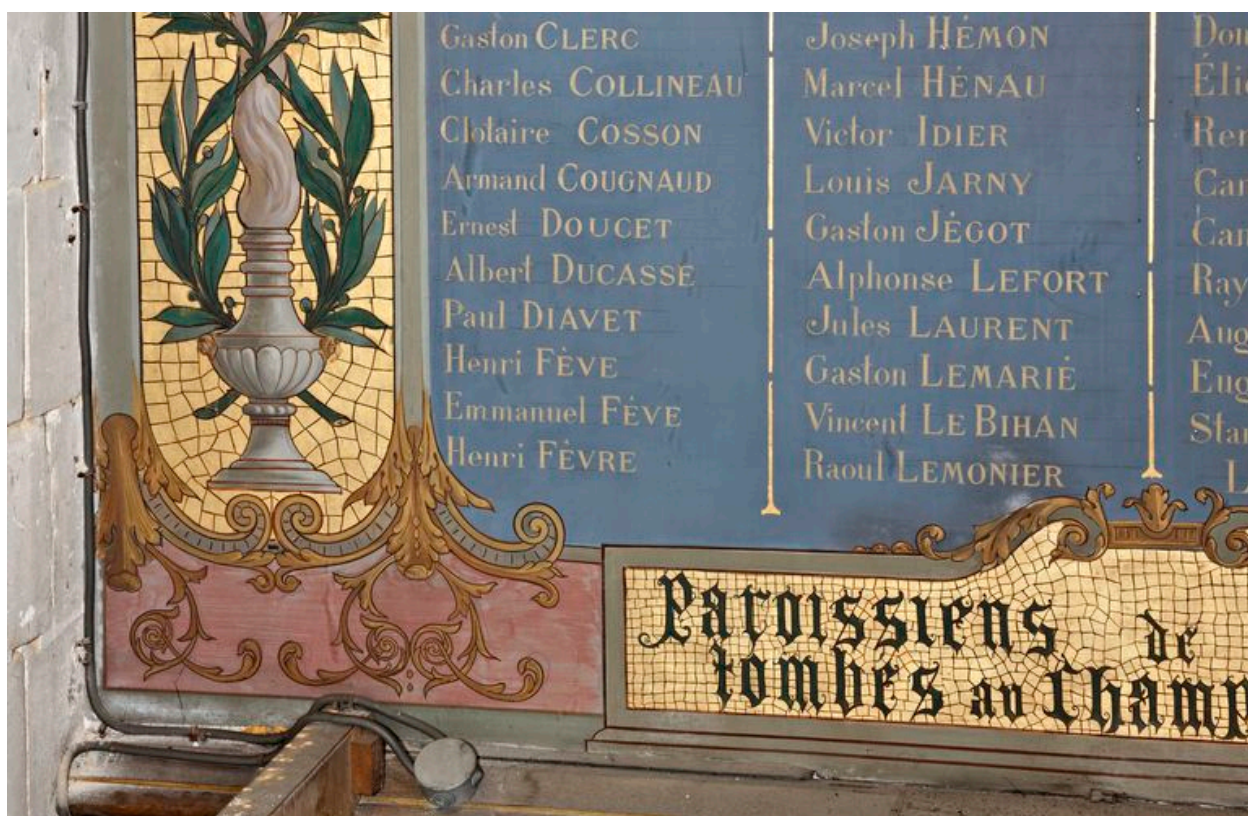 Gaston CLERC
Charles COLLINEAU
Clotaire COSSON
Armand COUGNAUD
Ernest DOUCET
Albert DUCASSE
Paul DIAVET
Henri FÈVE
Emmanuel FÈVE
Henri FÈVRE
Joseph HÉMON
Marcel HÉNAU
Victor IDIER
Louis JARNY
Gaston JÉGOT
Alphonse LEFORT
Jules LAURENT
Gaston LEMARIÉ
Vincent LE BIHAN
Raoul LEMONIER
Paroissiens de
tombés au Champ